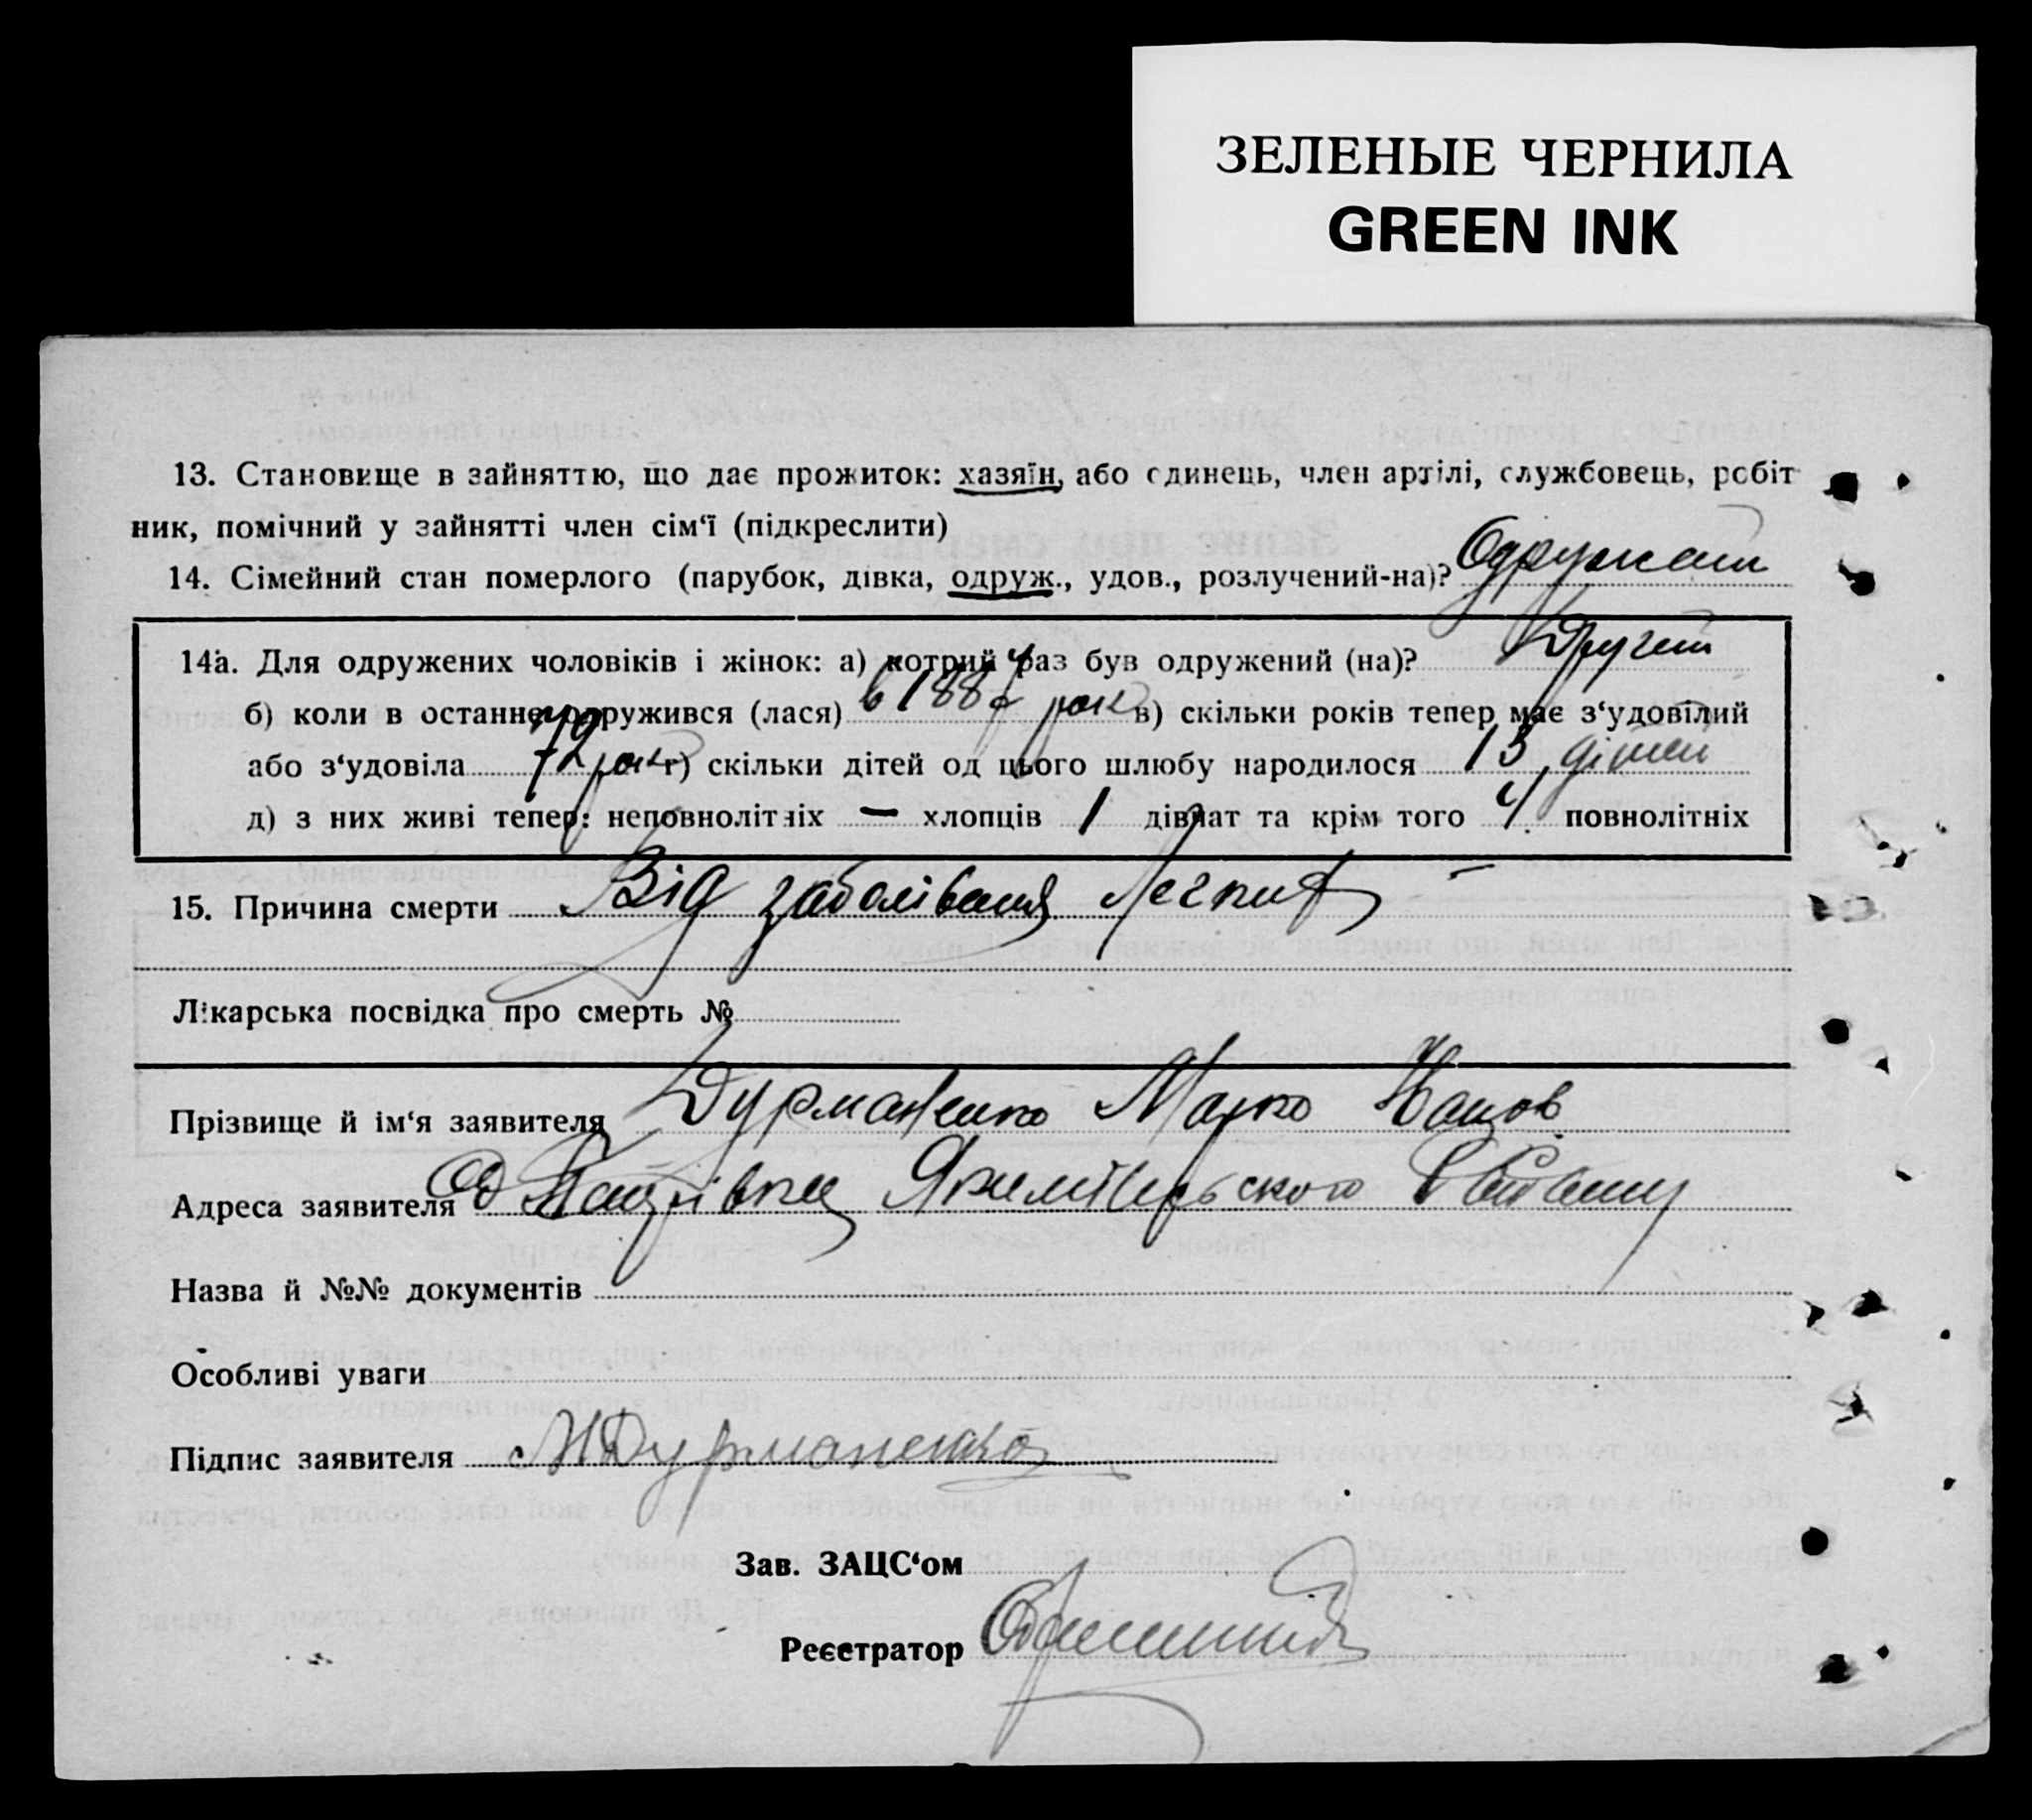 ЗЕЛЕНЫЕ ЧЕРНИЛА
GREEN INK
13. Становище в зайняттю, що дає прожиток: хазяїн, або єдинець, член артілі, службовець, робіт
ник, помічний у зайнятті член сім‘ї (підкреслити)
14. Сімейний стан померлого (парубок, дівка, одруж., удов., розлучений-на)? Одружений
14а. Для одружених чоловіків і жінок: а) котрий раз був одружений (на)? Другий
б) коли в останнє одружився (лася) в 188 рок в) скільки років тепер має з‘удовілий
або з‘удовіла 72 рок г) скільки дітей од цього шлюбу народилося 13 дітей
д) з них живі тепер: неповнолітніх — хлопців 1 дівчат та крім того 4 повнолітніх
15. Причина смерти Від заболівання Легких —
Лікарська посвідка про смерть №
Прізвище й ім‘я заявителя Дурманенко Марко Иванов
Адреса заявителя
Назва й №№ документів
Особливі уваги
Підпис заявителя МДурманенко
Зав. ЗАЦС‘ом
Реєстратор